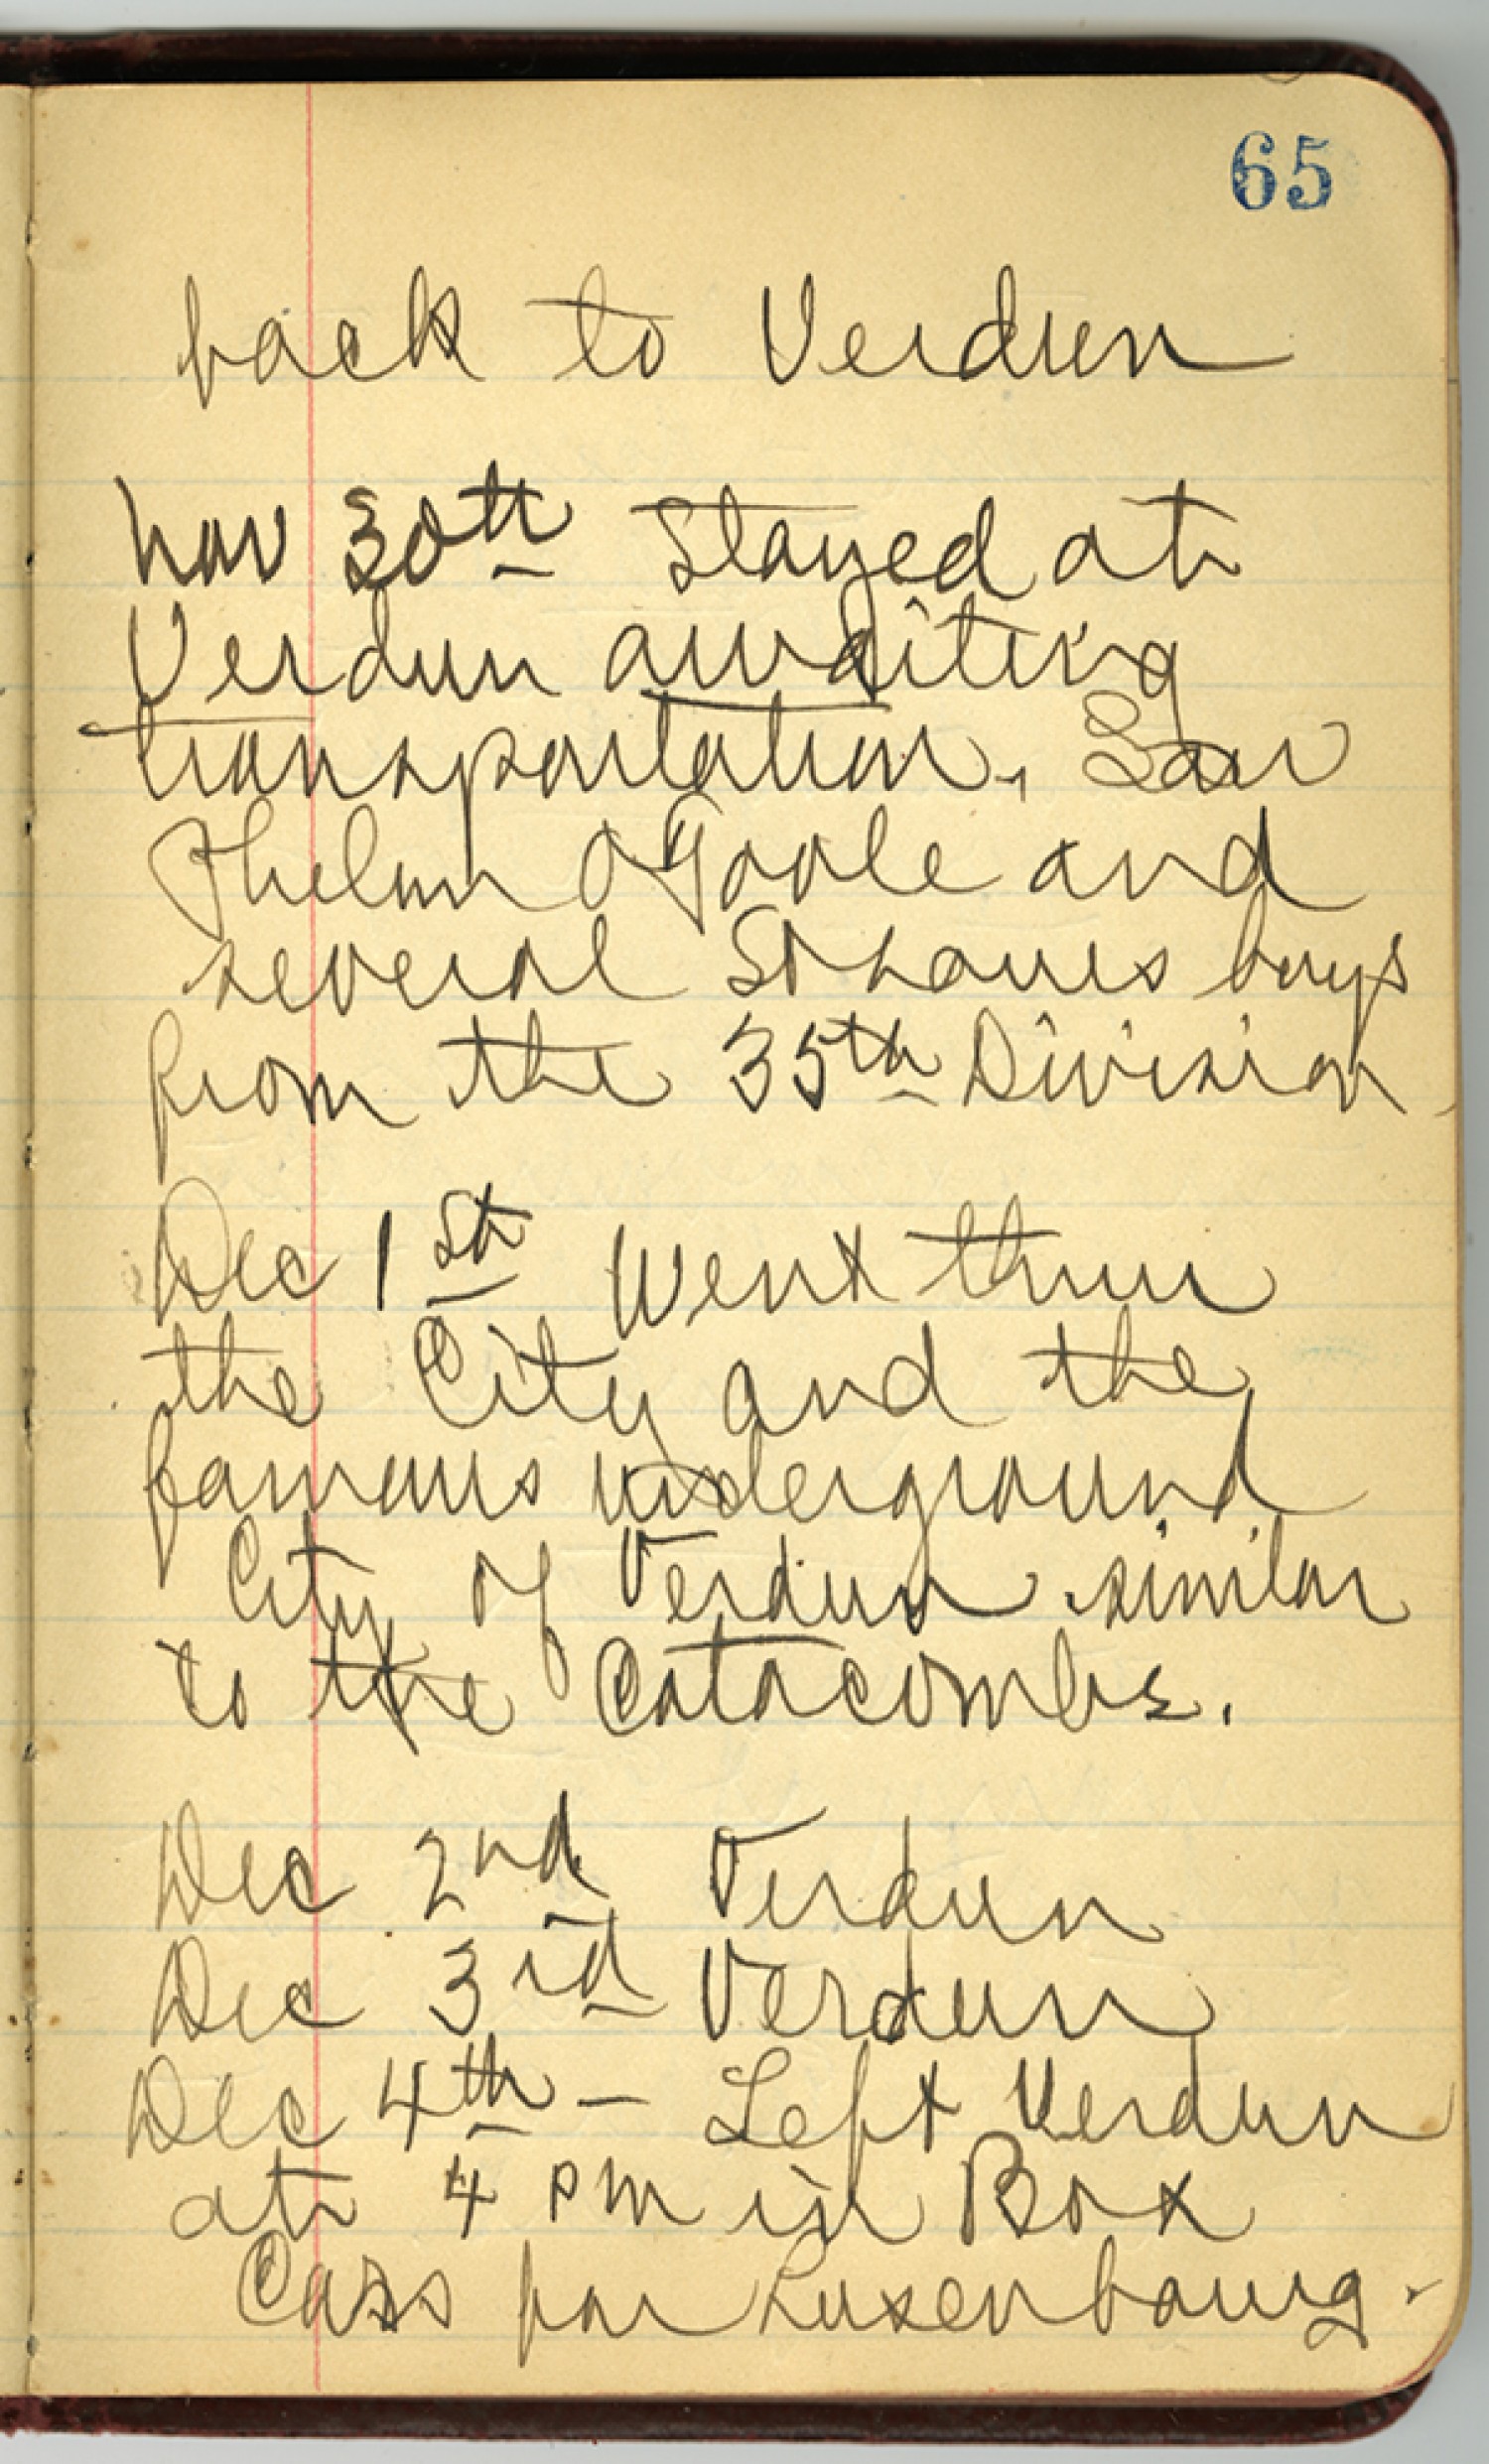 65
back to Verdun
Nov 30th Stayed at
Verdun awaiting
transportation. Saw
Phelim O'Toole and
several St Louis boys
from the 35th Division.
Dec 1st Went thru
the City and the
famous underground
City of Verdun similar
to the Catacombs.
Dec 2nd Verdun
Dec 3rd Verdun
Dec 4th - Left Verdun
at 4 PM in Box
Cars for Luxenbourg.